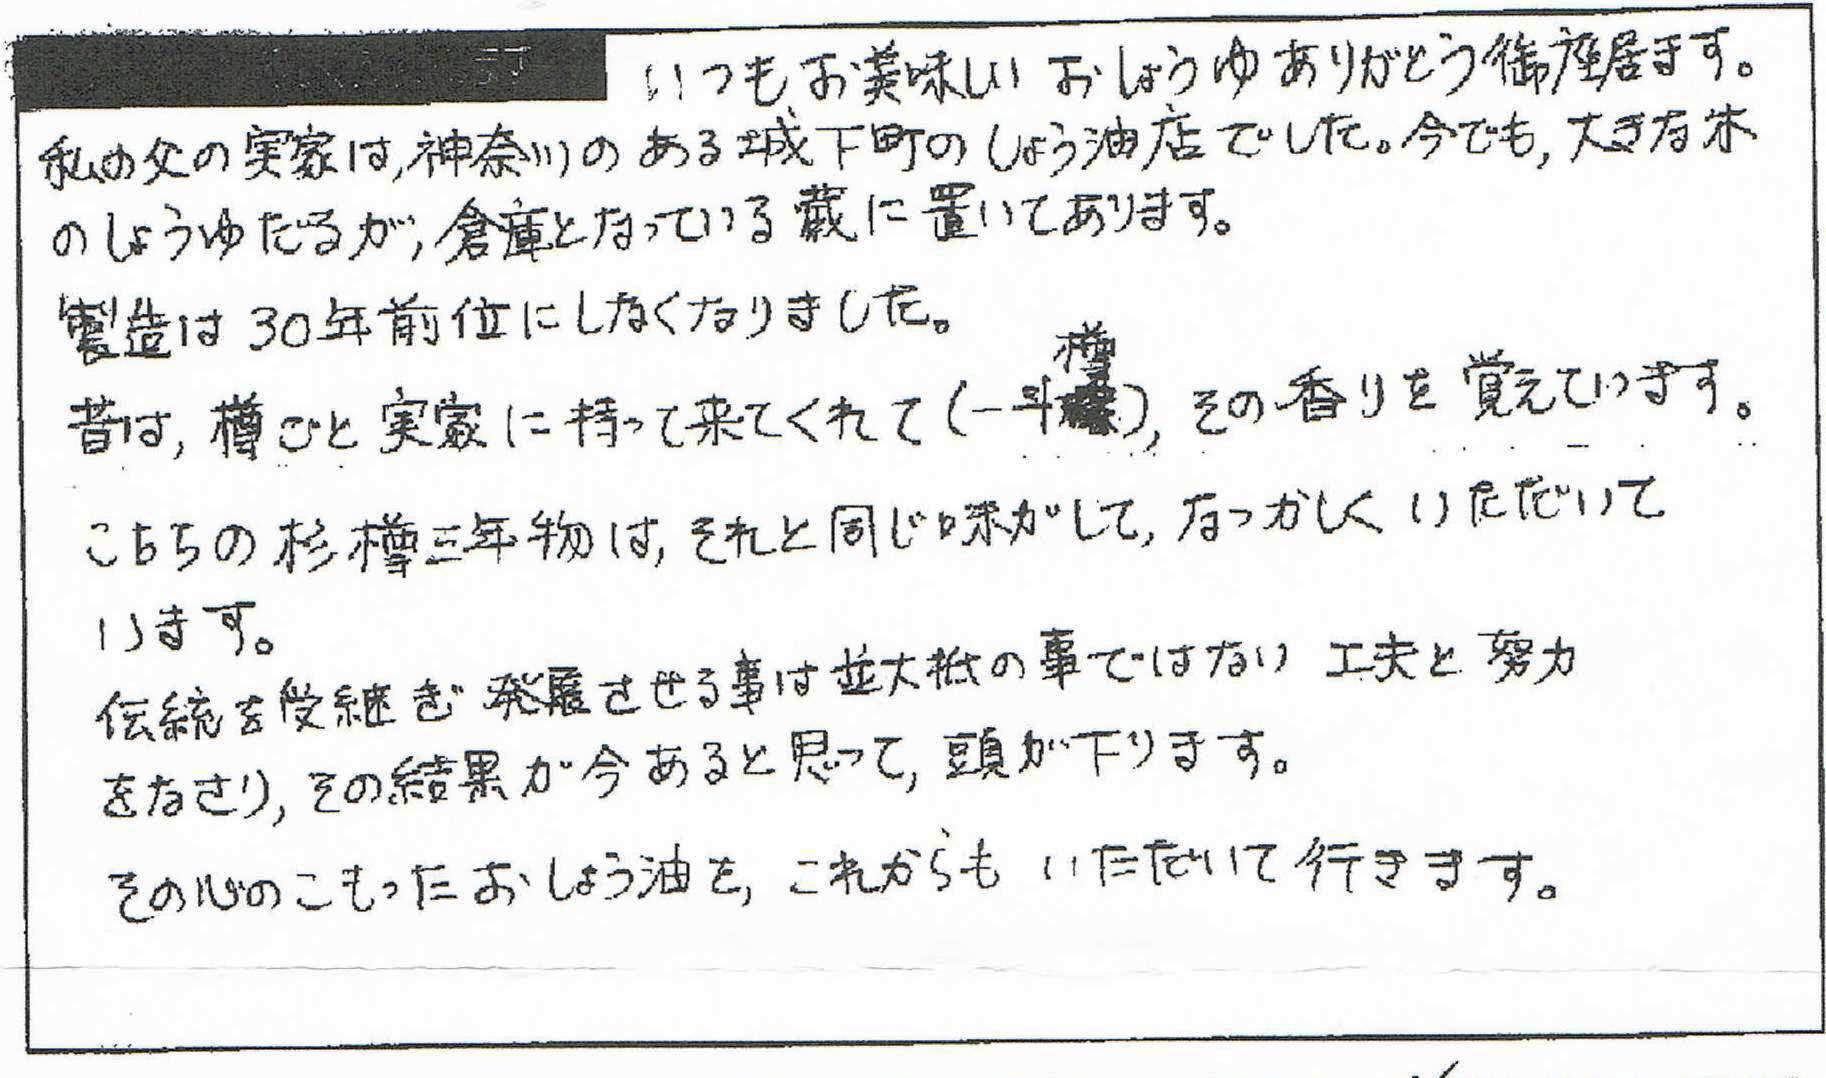 いつもお美味しい おしょうゆ ありがとう御座居ます。
私の父の実家は,神奈川の ある城下町の しょう油店でした。今でも,大きな木
のしょうゆだるが,倉庫となっている蔵に置いてあります。
製造は30年前位にしなくなりました。
昔は,樽ごと実家に持って来てくれて(一斗樽),その香りを覚えています。
こちらの杉樽三年物は,それと同じ味がして,なつかしくいただいて
います。
伝統を受継ぎ発展させる事は並大抵の事ではない 工夫と努力
をなさり,その結果が今あると思って,頭が下ります。
その心のこもったおしょう油を,これからも いただいて行きます。